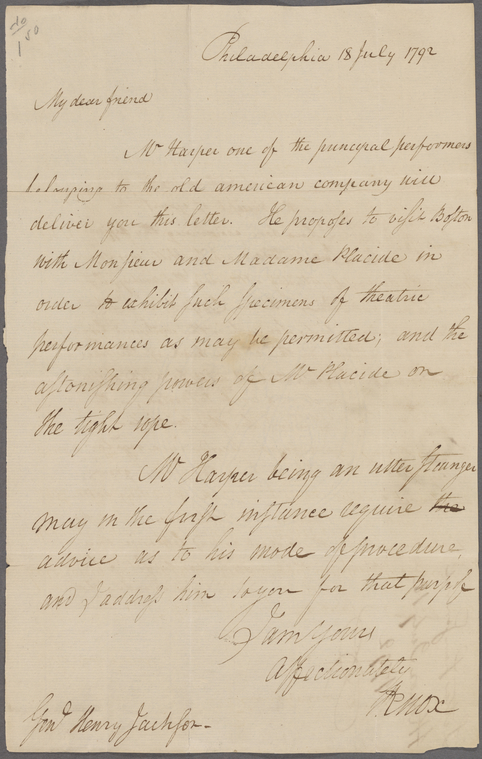 150
Philadelphia 18 July 1792
My dear friend
Mr Harper one of the principal performers
belonging to the old american company will
deliver you this letter. He proposes to visit Boston
with Monsieur and Madame Placide in
order to exhibit such specimens of theatric
performances as may be permitted; and the
astonishing powers of Mr Placide on
the tight rope.
Mr Harper being an utter stranger
may in the first instance require the
advice as to his mode of procedure,
and I address him to you for that purpose
I am Yours
affectionately
HKnox
Genl Henry Jackson-